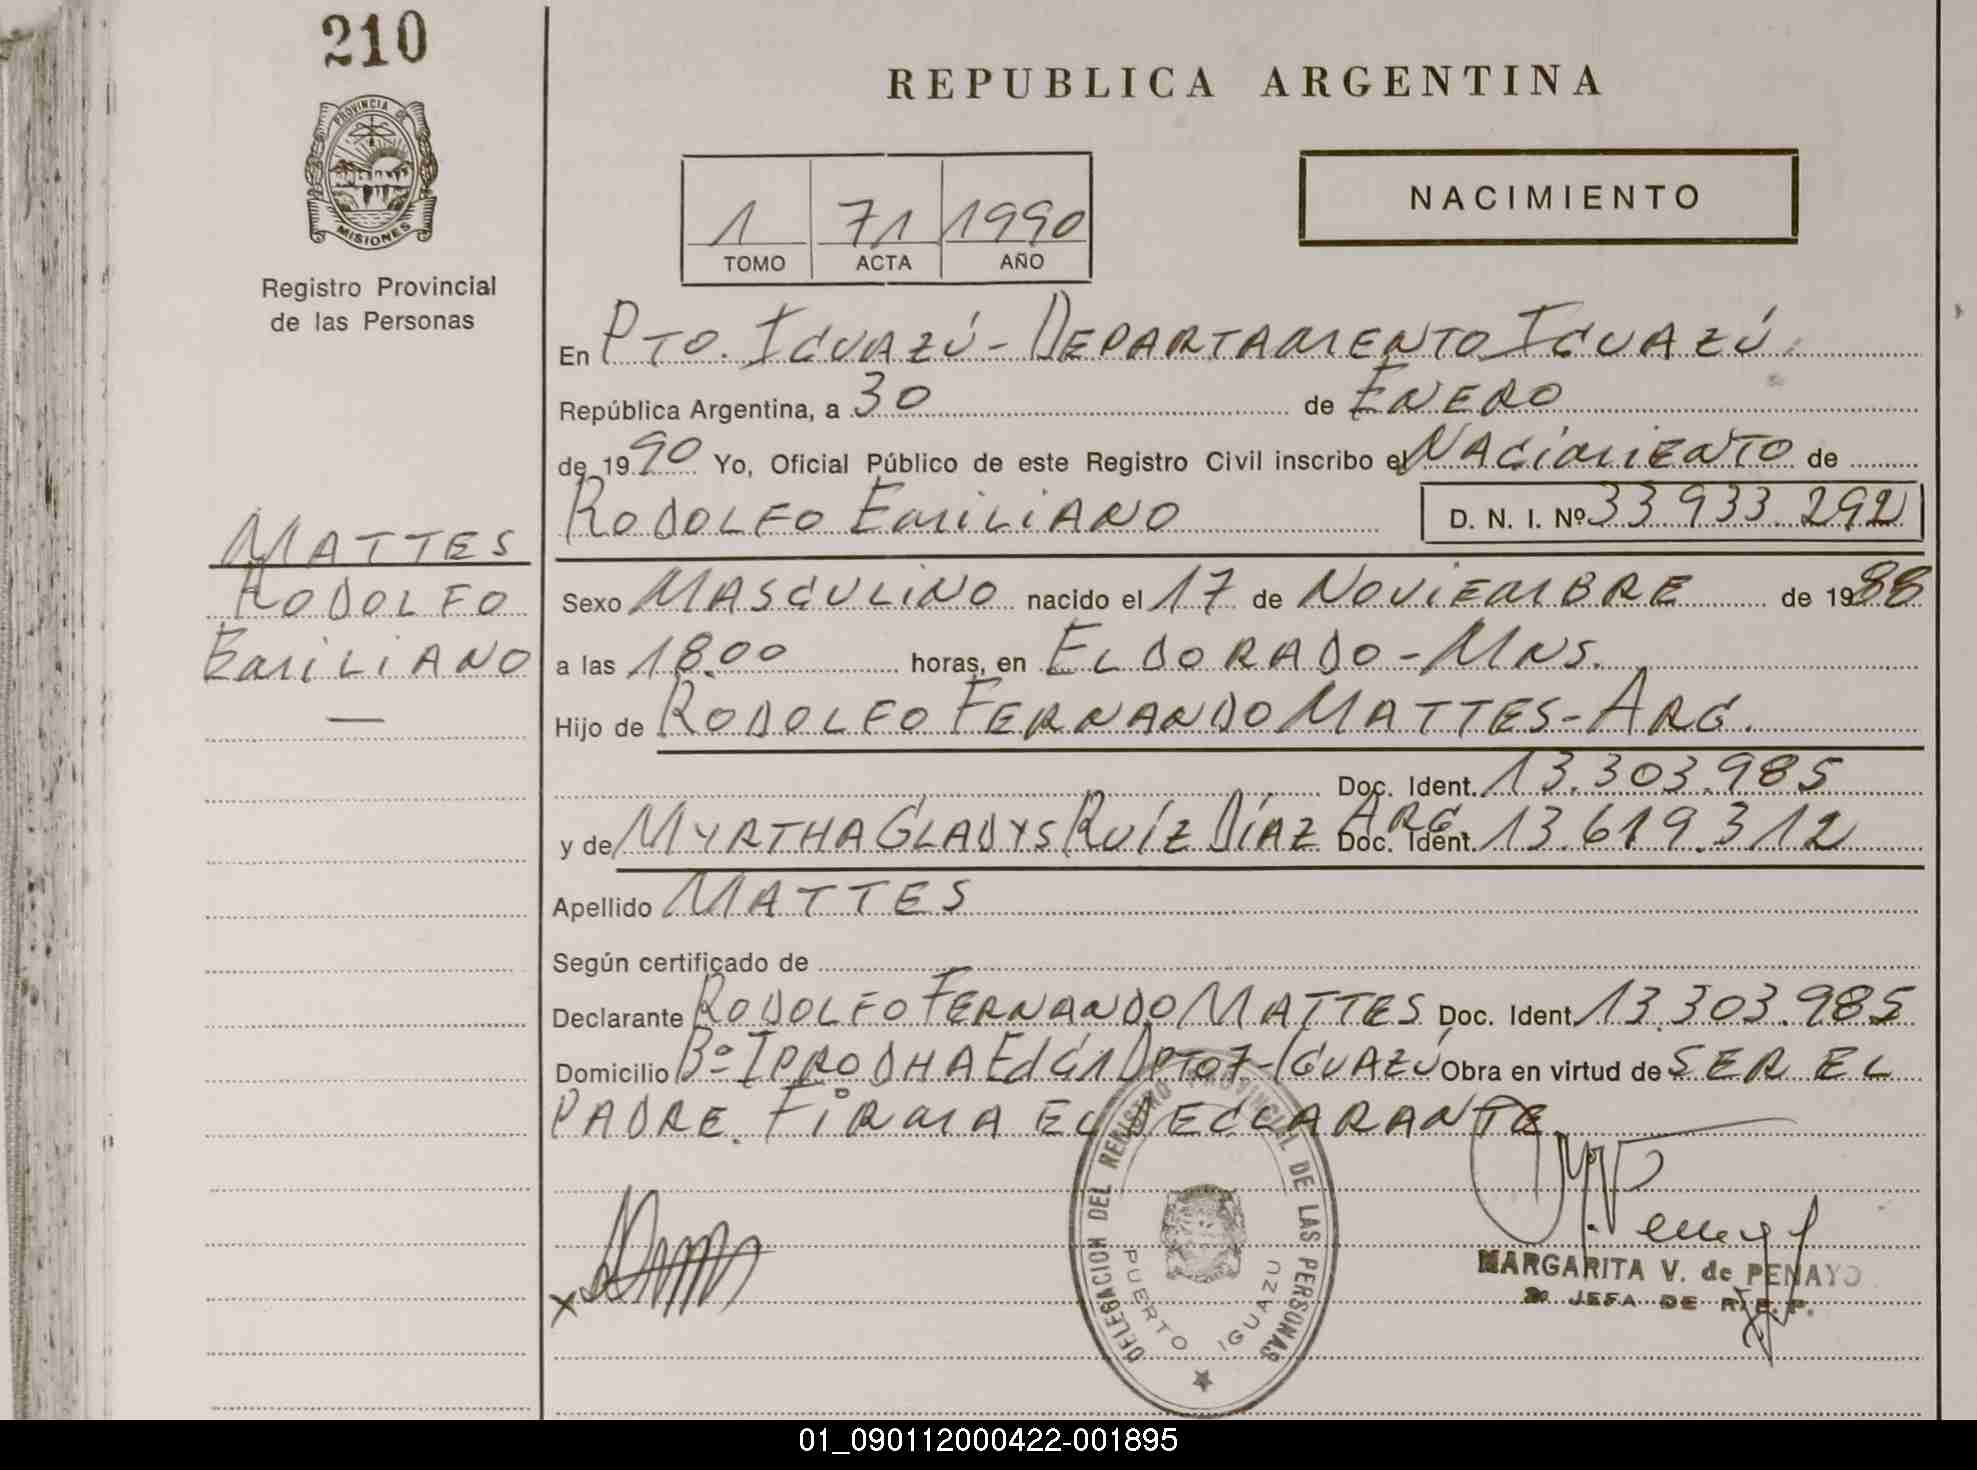 210
PROVINCIA DE
MISIONES
Registro Provincial
de las Personas
MATTES
RODOLFO
EMILIANO
—
REPUBLICA ARGENTINA
NACIMIENTO
1 71 1990
TOMO ACTA AÑO
En PTO. IGUAZÚ - DEPARTAMENTO IGUAZÚ
República Argentina, a 30 de ENERO
de 1990 Yo, Oficial Público de este Registro Civil inscribo el NACIMIENTO de
RODOLFO EMILIANO D. N. I. Nº 33.933.292
Sexo MASCULINO nacido el 17 de NOVIEMBRE de 1988
a las 18.00 horas, en ELDORADO - MNS.
Hijo de RODOLFO FERNANDO MATTES - ARG.
Doc. Ident. 13.303.985
y de MYRTHA GLADYS RUÍZ DÍAZ ARG. Doc. Ident. 13.619.312
Apellido MATTES
Según certificado de
Declarante RODOLFO FERNANDO MATTES Doc. Ident. 13.303.985
Domicilio Bº IPRODHA Ed G1 DPTO 7 - IGUAZÚ Obra en virtud de SER EL
PADRE. FIRMA EL DECLARANTE
DELEGACION DEL REGISTRO PROVINCIAL DE LAS PERSONAS
PUERTO IGUAZU
MARGARITA V. de PENAYO
JEFA DE R. E. P.
01_090112000422-001895